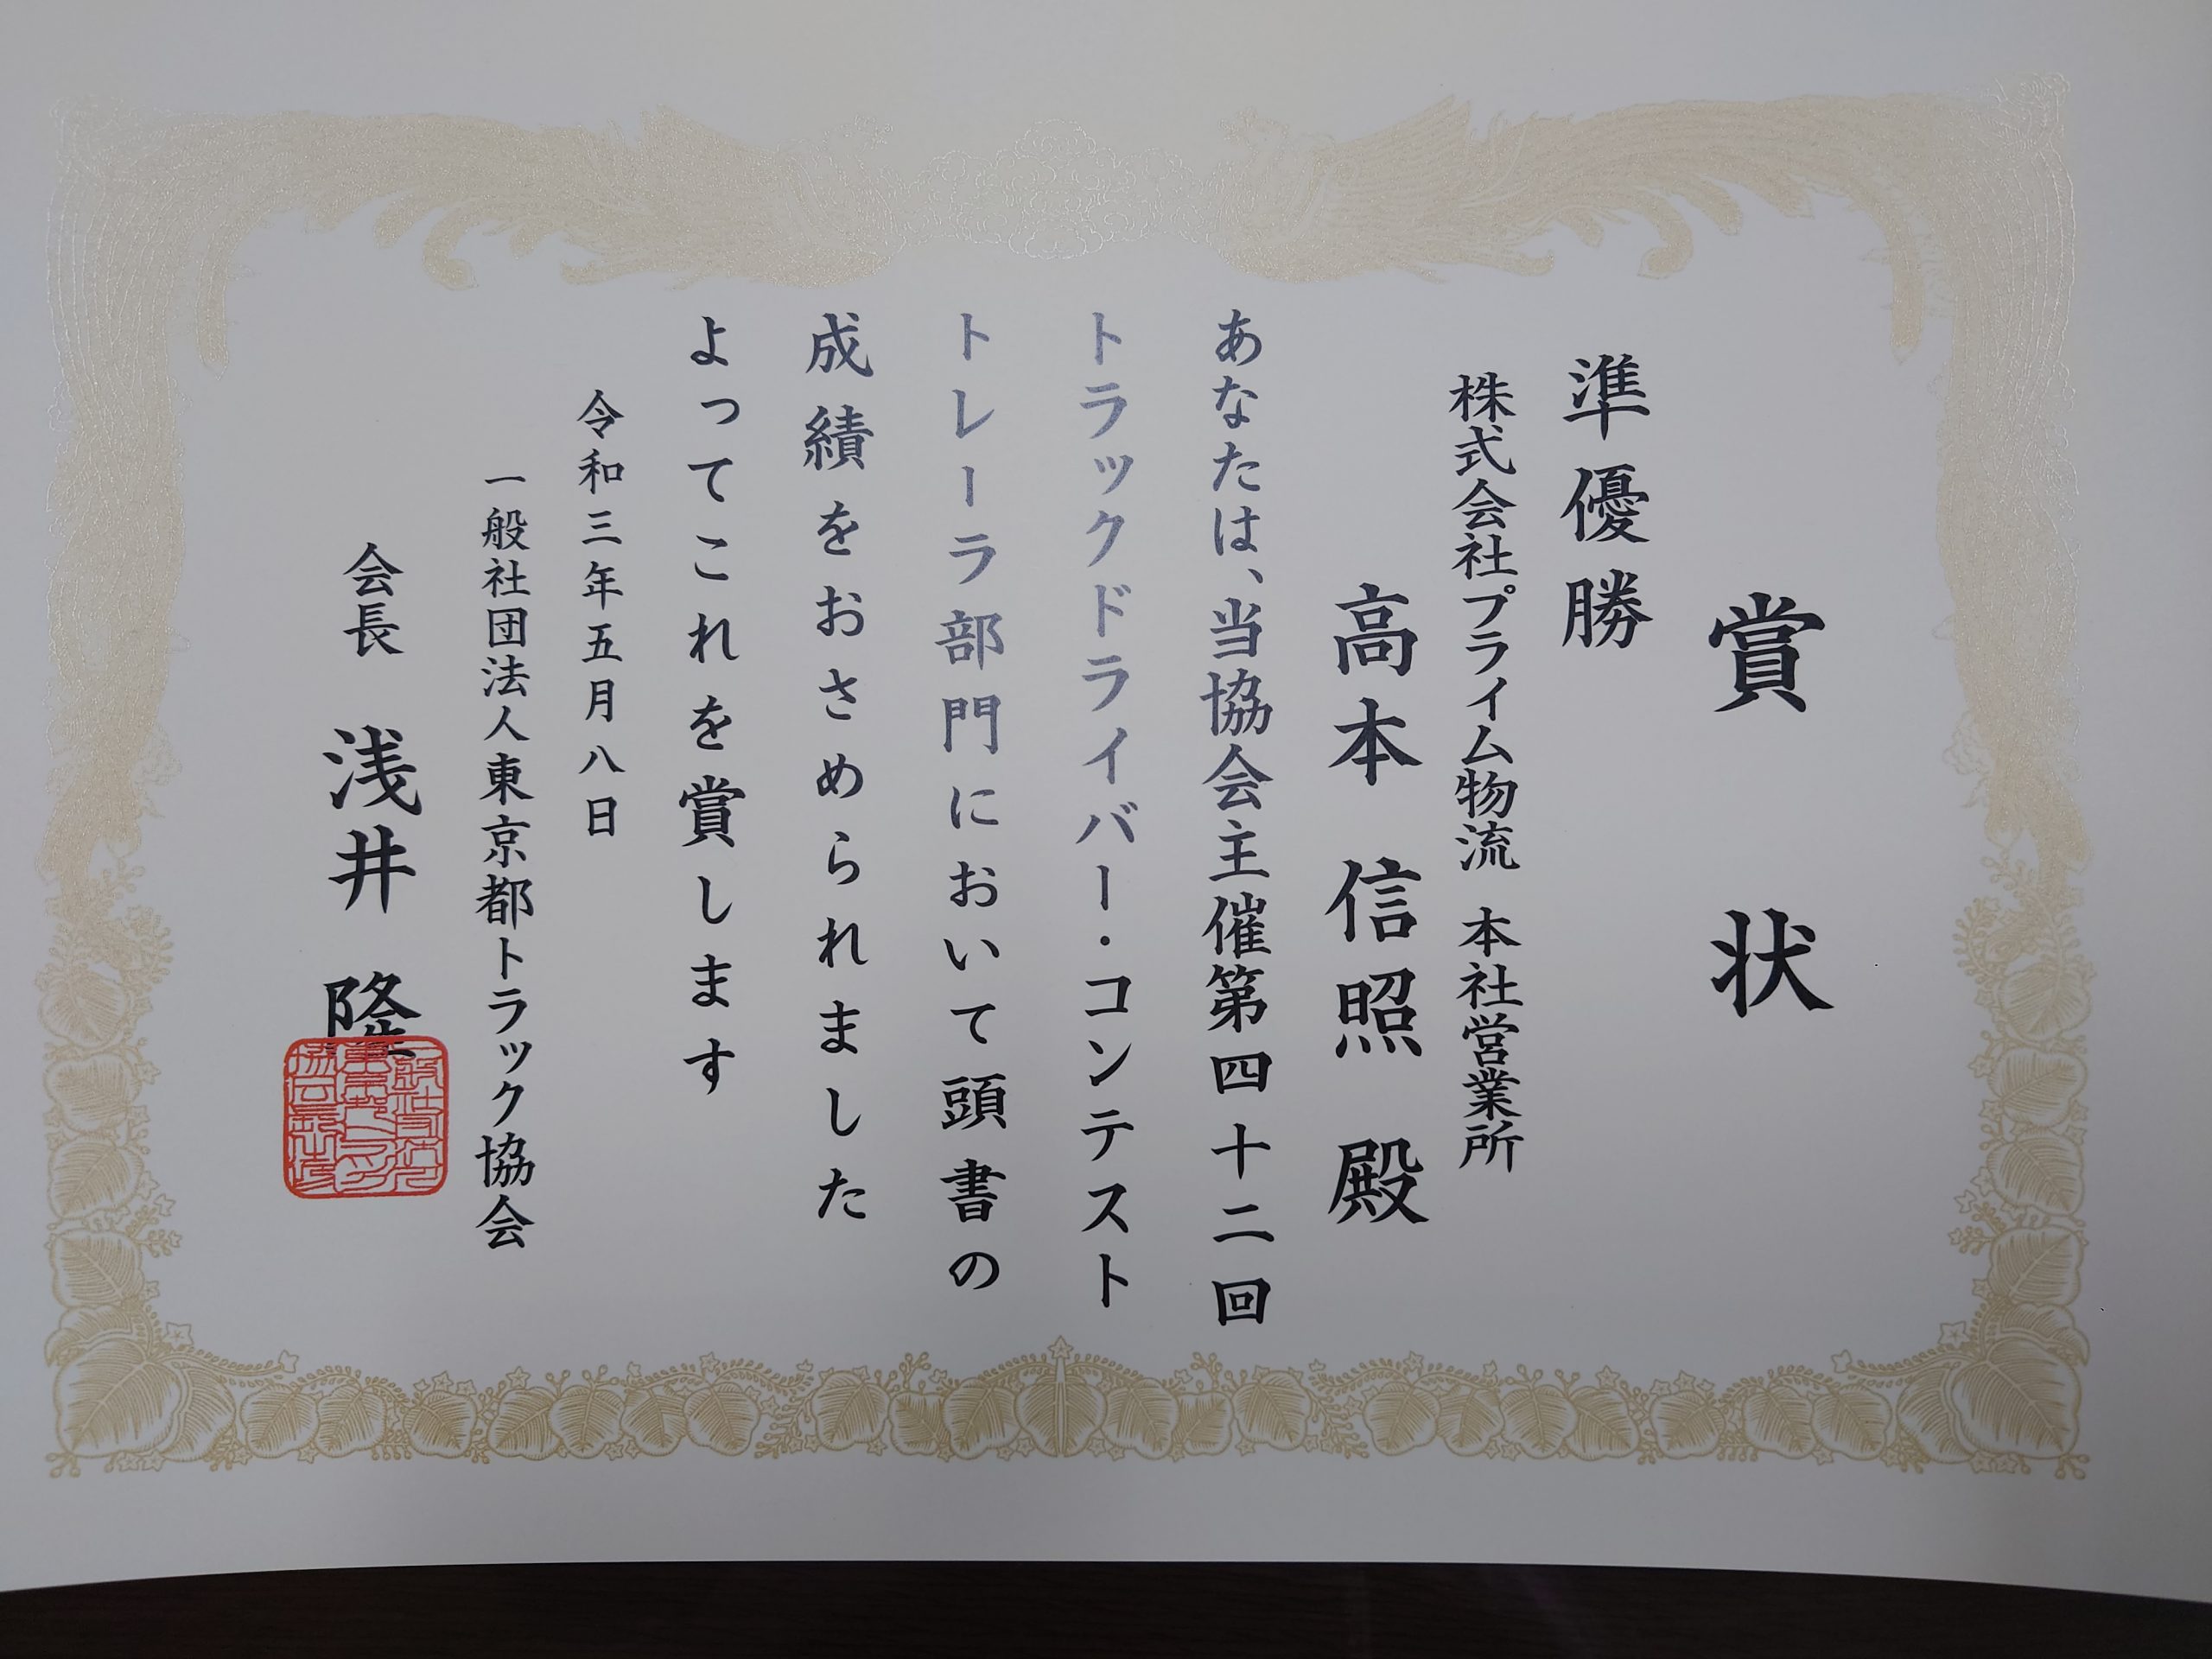 賞状
準優勝
株式会社プライム物流 本社営業所
高本 信照 殿
あなたは、当協会主催第四十二回
トラックドライバー・コンテスト
トレーラ部門において頭書の
成績をおさめられました
よってこれを賞します
令和三年五月八日
一般社団法人東京都トラック協会
会長 浅井 隆